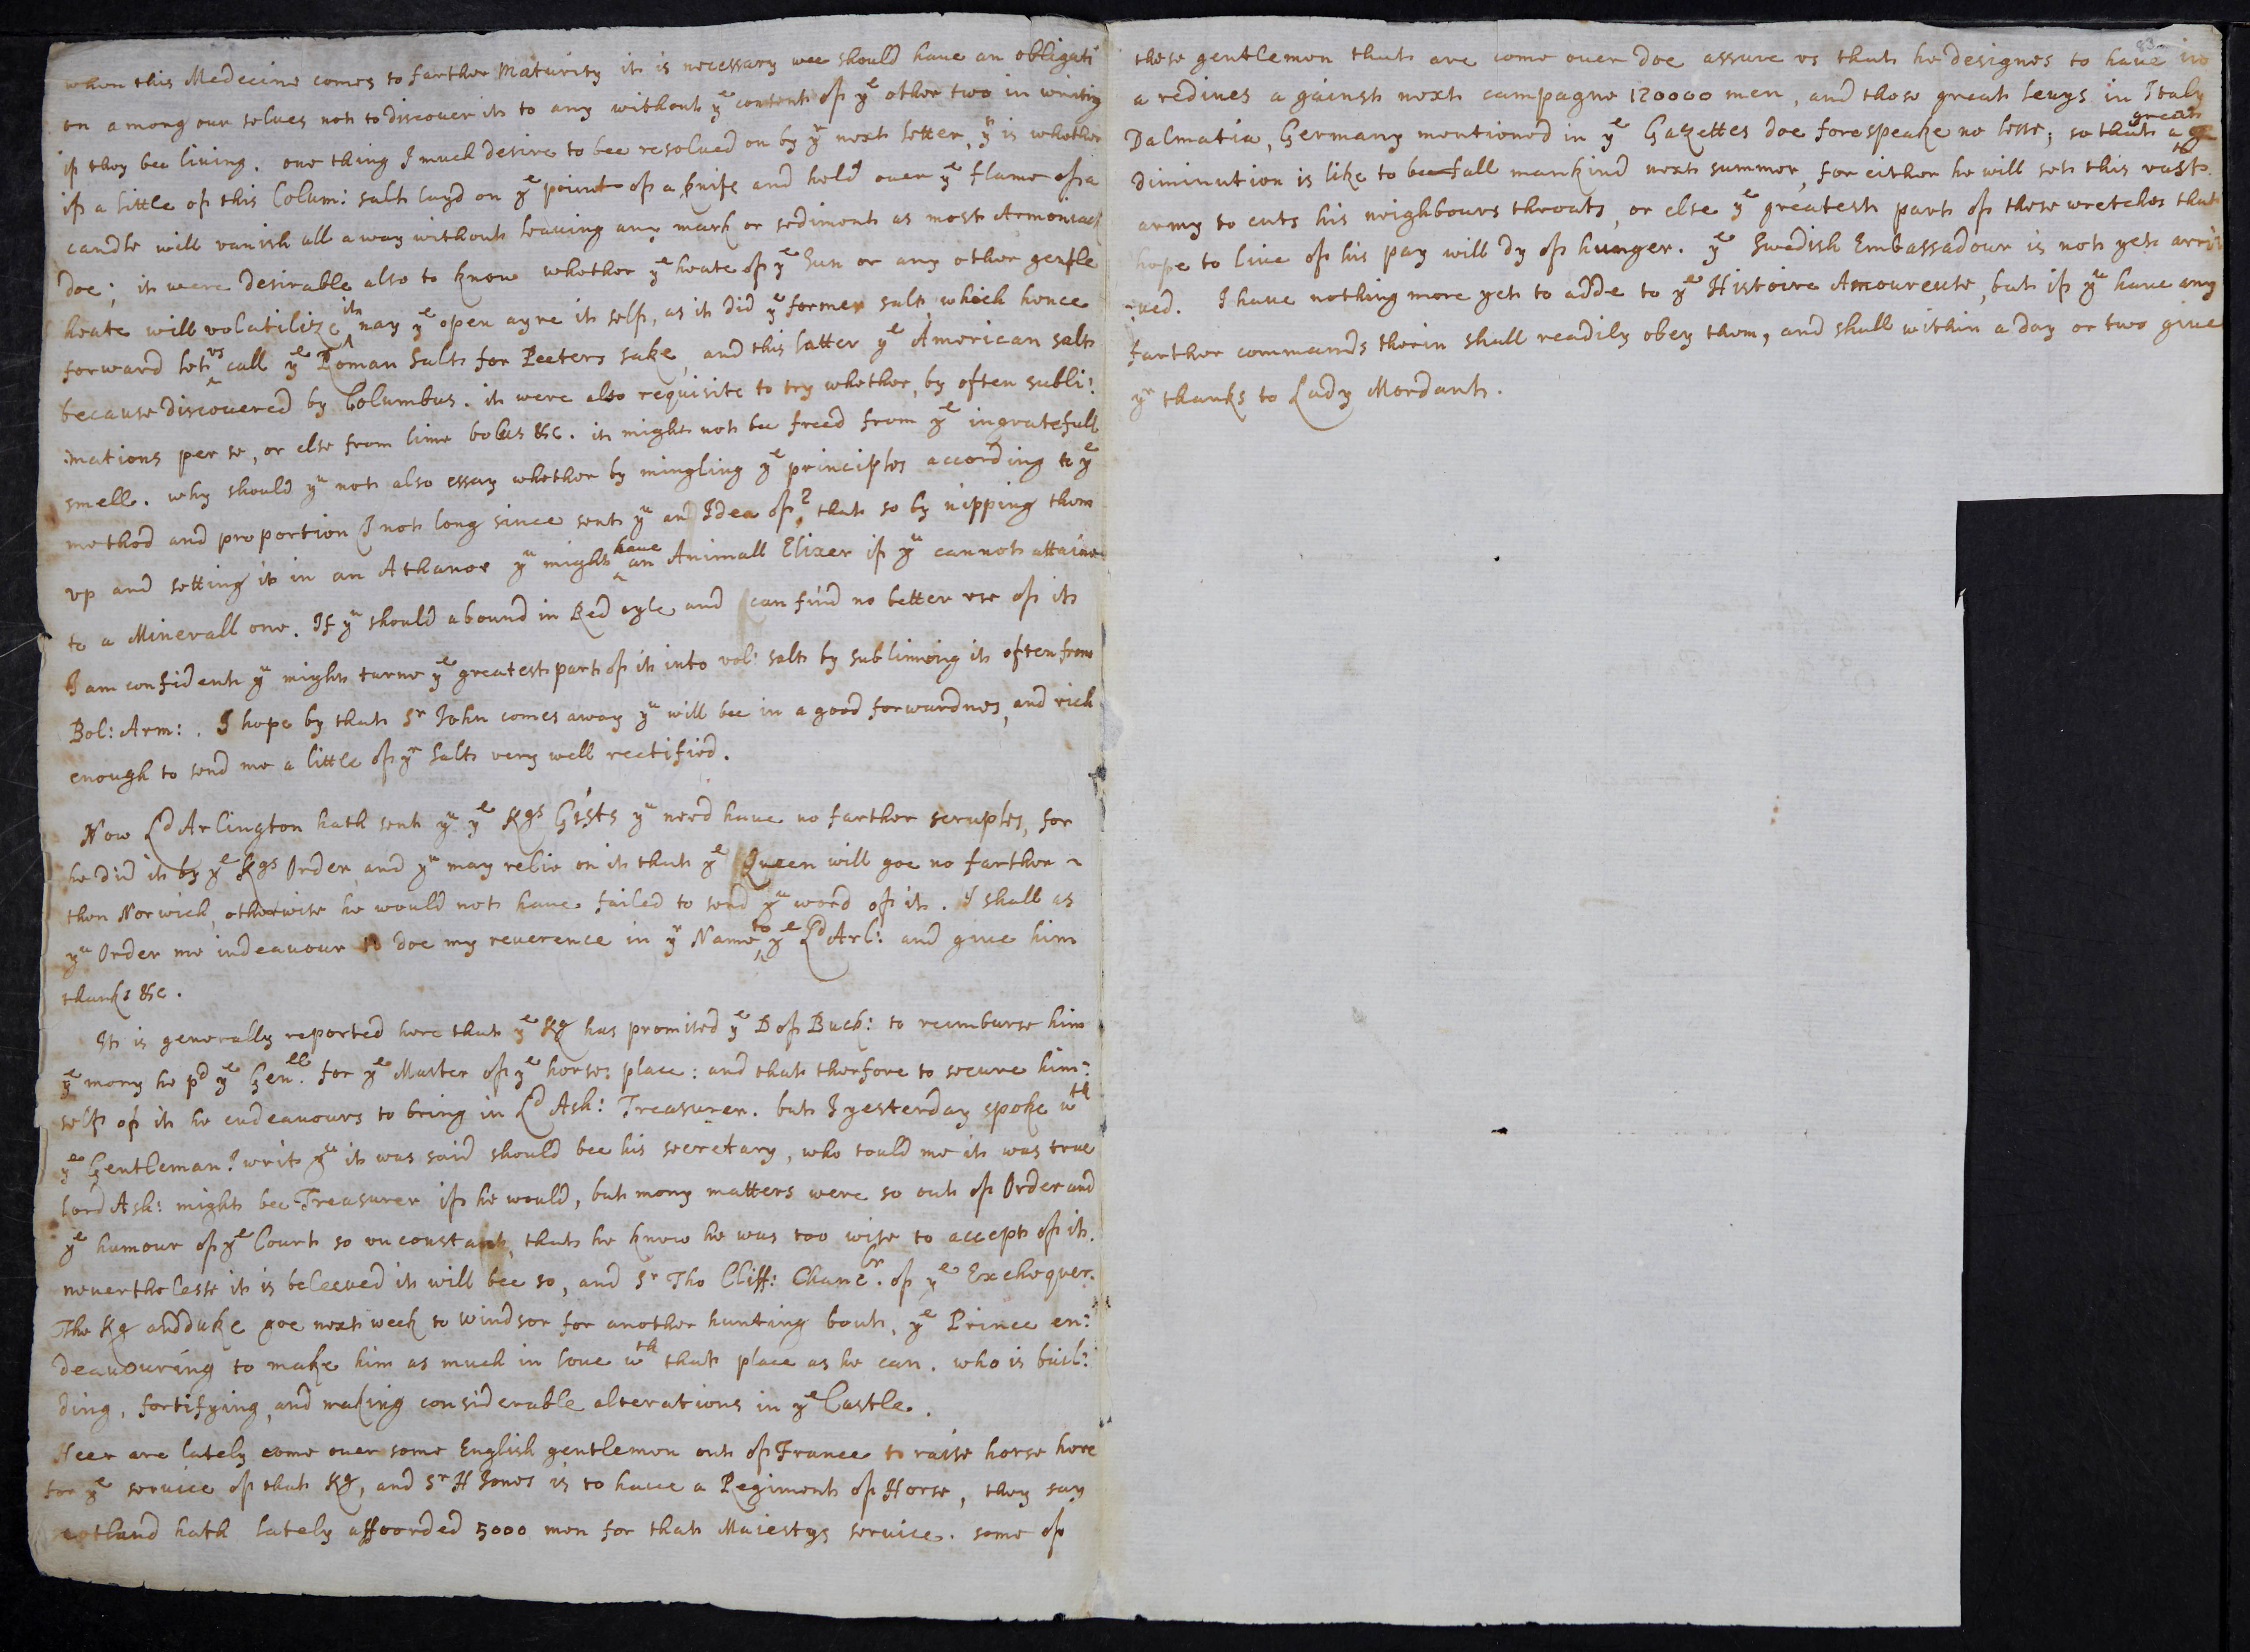 when this Medecine comes to farther Maturity it is necessary wee should haue an obligati
on among our selues not to discouer it to any without yᵉ consent of yᵉ other two in writing
if they bee liuing. one thing I much desire to bee resolued on by yʳ next letter, yᵗ is whether
if a little of this Colum: salt layd on yᵉ point of a knife and held ouer yᵉ flame of a
candle will vanish all away without leauing any mark or sediment as most Armoniack
doe; it were desirable also to know whether yᵉ heate of yᵉ Sun or any other gentle
heate will volatilize it nay yᵉ open ayre it self, as it did yᵉ former salt, which hence
forward let vs call yᵉ Roman Salt for Peeters sake, and this latter yᵉ American salt
because discouered by Columbus. it were also requisite to try whether, by often subli:
mations per se, or else from lime bolus &c. it might not bee freed from yᵉ ingratefull
smell. why should yᵘ not also essay whether by mingling yᵉ principles according to yᵉ
method and proportion I not long since sent yᵘ an Idea of? that so by nipping them
vp and setting it in an Athanor yᵘ might haue an Animall Elixer if yᵘ cannot attaine
to a Minerall one. If yᵘ should abound in Red oyle and can find no better vse of it
I am confident yᵘ might turne yᵉ greatest part of it into vol: salt by subliming it often from
Bol: Arm: . I hope by that Sʳ John comes away yᵘ will bee in a good forwardnes, and rich
enough to send me a little of yʳ Salt very well rectified.
Now Lᵈ Arlington hath sent yᵘ yᵉ Kgˢ Gists yᵘ need haue no farther scruples, for
he did it by yᵉ Kgˢ Order, and yᵘ may relie on it that yᵉ Queen will goe no farther ~
then Norwich, otherwise he would not haue failed to send yᵘ word of it. I shall as
yᵘ Order me indeauour to doe my reuerence in yʳ Name to yᵉ Lᵈ Arl: and giue him
thanks &c.
It is generally reported here that yᵉ Kg has promised yᵉ D of Buck: to reimburse him
yᵉ mony he pᵈ yᵉ Genˡˡ. for yᵉ Master of yᵉ horses place: and that therfore to secure him:
self of it he endeauours to bring in Lᵈ Ash: Treasurer. but I yesterday spoke wᵗʰ
yᵉ Gentleman I writ yᵘ it was said should bee his secretary, who tould me it was true
Lord Ash: might bee Treasurer if he would, but mony matters were so out of Order and
yᵉ humour of yᵉ Court so vnconstant, that he knew he was too wise to accept of it.
neuerthelesse it is beleeued it will bee so, and Sʳ Tho Cliff: Chancˡʳ. of yᵉ Exchequer.
The Kg and duke goe next week to Windsor for another hunting bout, yᵉ Prince en:
deauouring to make him as much in loue wᵗʰ that place as he can. who is buil:
ding, fortifying, and making considerable alterations in yᵉ Castle.
Heer are lately come ouer some English gentlemen out of France to raise horse here
for yᵉ seruice of that Kg, and Sʳ H Jones is to haue a Regiment of Horse, they say
Scotland hath lately affoorded 5000 men for that Maiestys seruice. some of
these gentlemen that are come ouer doe assure vs that he designes to haue in
a redines against next campagne 120000 men, and those great leuys in Italy
Dalmatia, Germany mentioned in yᵉ Gazettes doe forespeake no lesse; so that a great
diminution is like to befall mankind next summer, for either he will set this vast
army to cutt his neighbours throats, or else yᵉ greatest part of these wretches that
hope to liue of his pay will dy of hunger. yᵉ Swedish Embassadour is not yet arri
:ued. I haue nothing more yet to adde to yᵉ Histoire Amoureuse, but if yᵘ haue any
farther commands therin shall readily obey them, and shall within a day or two giue
yʳ thanks to Lady Mordant.